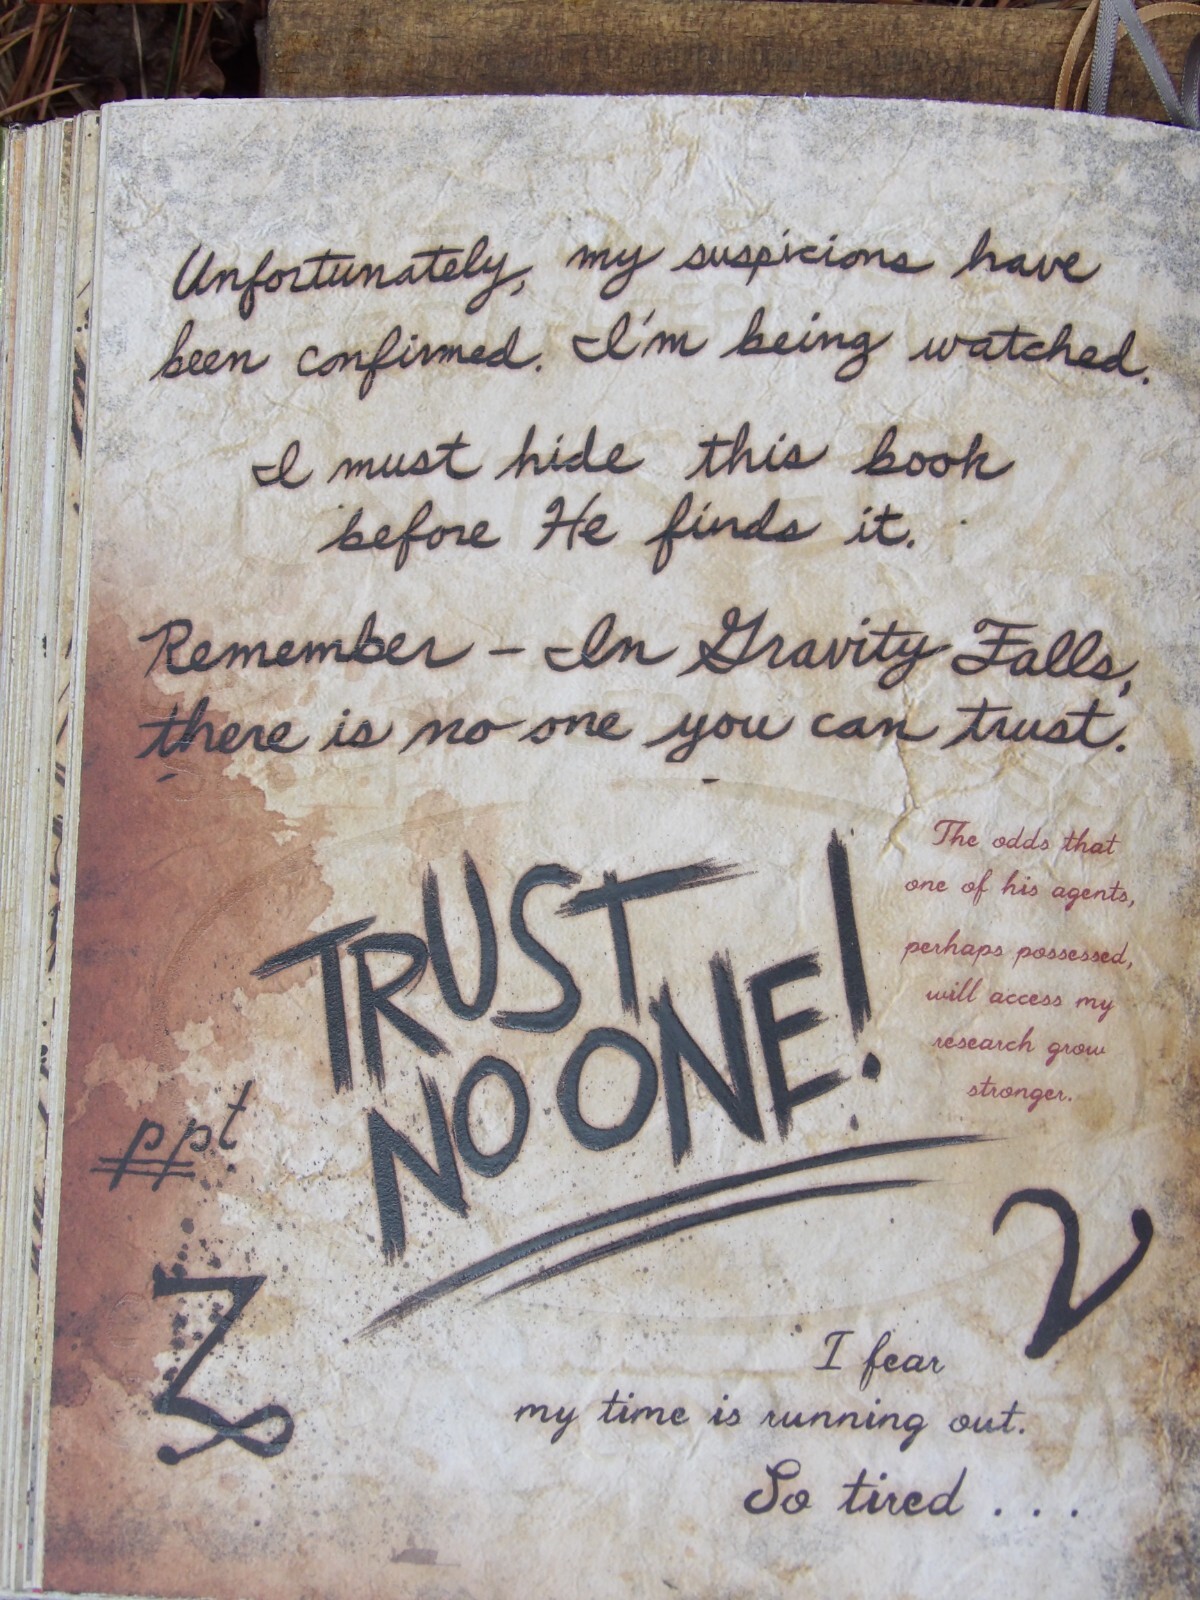 Unfortunately, my suspicions have
been confirmed. I'm being watched.
I must hide this book
before He finds it.
Remember – In Gravity Falls,
there is no one you can trust.
TRUST
NO ONE!
The odds that
one of his agents,
perhaps possessed,
will access my
research grow
stronger.
ppt
I fear
my time is running out.
So tired . . .